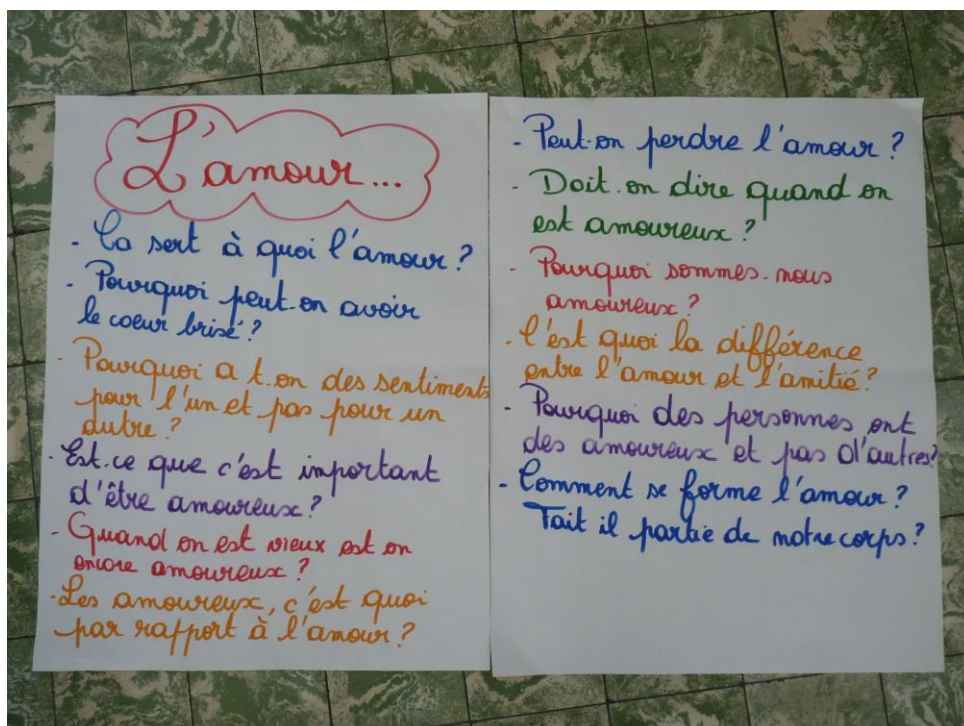 L'amour...
- Ça sert à quoi l'amour ?
- Pourquoi peut-on avoir
le coeur brisé ?
- Pourquoi a t-on des sentiments
pour l'un et pas pour un
autre ?
- Est-ce que c'est important
d'être amoureux ?
- Quand on est vieux est on
encore amoureux ?
- Les amoureux, c'est quoi
par rapport à l'amour ?
- Peut-on perdre l'amour ?
- Doit-on dire quand on
est amoureux ?
- Pourquoi sommes-nous
amoureux ?
- C'est quoi la différence
entre l'amour et l'amitié ?
- Pourquoi des personnes ont
des amoureux et pas d'autres ?
- Comment se forme l'amour ?
Fait il partie de notre corps ?